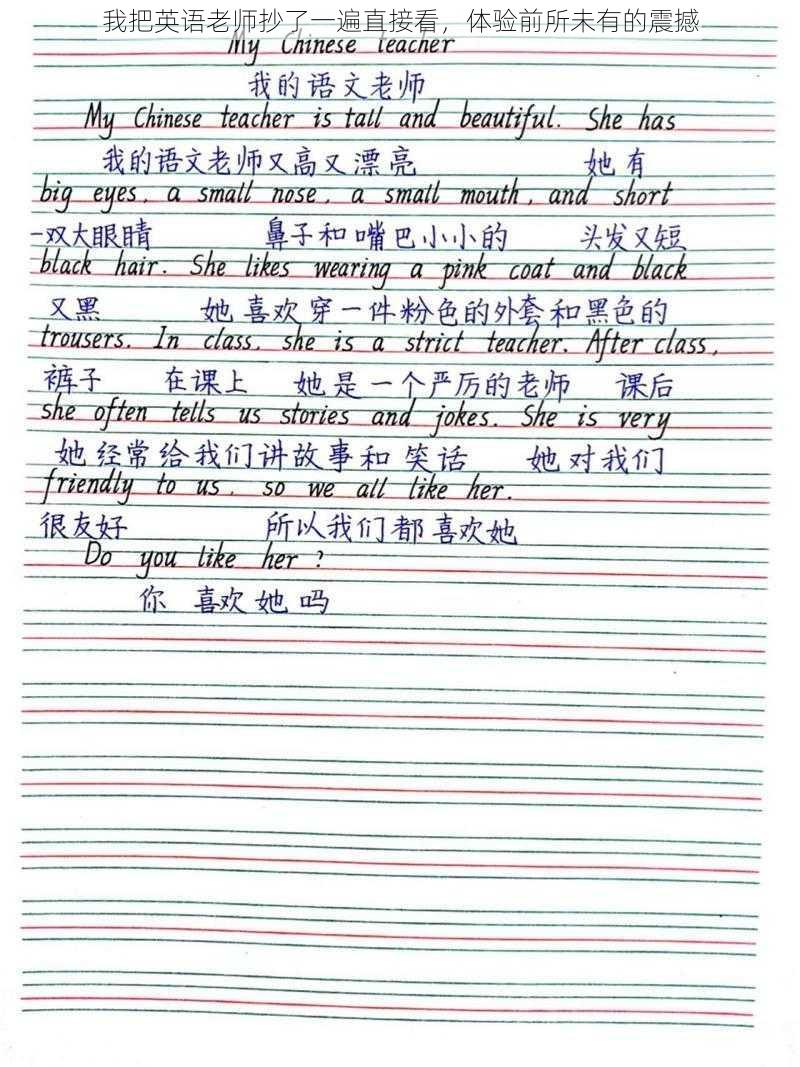 我把英语老师抄了一遍直接看，体验前所未有的震撼
My Chinese teacher
我的语文老师
My Chinese teacher is tall and beautiful. She has
我的语文老师又高又漂亮 她有
big eyes, a small nose, a small mouth, and short
一双大眼睛 鼻子和嘴巴小小的 头发又短
black hair. She likes wearing a pink coat and black
又黑 她喜欢穿一件粉色的外套和黑色的
trousers. In class, she is a strict teacher. After class,
裤子 在课上 她是一个严厉的老师 课后
she often tells us stories and jokes. She is very
她经常给我们讲故事和笑话 她对我们
friendly to us, so we all like her.
很友好 所以我们都喜欢她
Do you like her?
你喜欢她吗